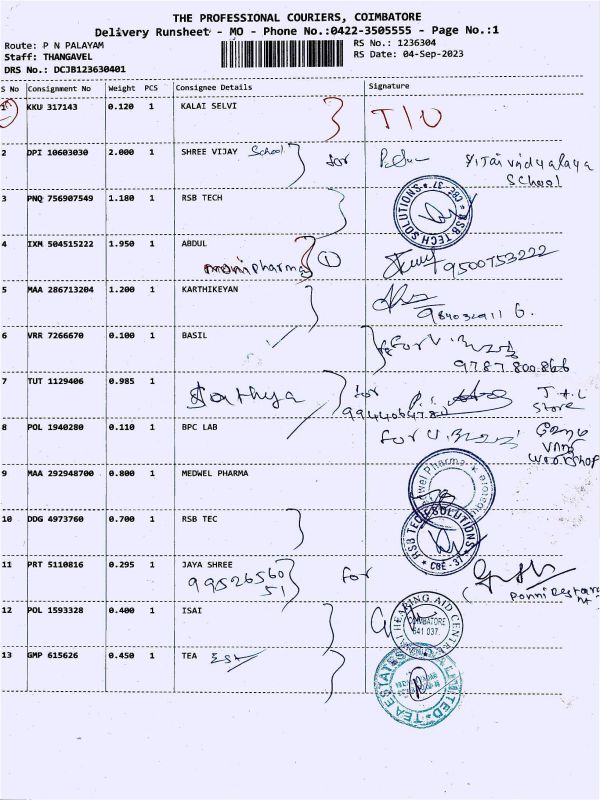 THE PROFESSIONAL COURIERS, COIMBATORE
Delivery Runsheet - MO - Phone No.:0422-3505555 - Page No.:1
Route: P N PALAYAM
Staff: THANGAVEL
DRS No.: DCJB123630401
RS No.: 1236304
RS Date: 04-Sep-2023
S No Consignment No Weight PCS Consignee Details Signature
KKU 317143 0.120 1 KALAI SELVI T/U
2 DPI 10603030 2.000 1 SHREE VIJAY School for
School
3 PNQ 756907549 1.180 1 RSB TECH
RSB TECH SOLUTIONS * CBE-37 *
4 IXM 504515222 1.950 1 ABDUL
pharma 1 9500753222
5 MAA 286713204 1.200 1 KARTHIKEYAN
6 VRR 7266670 0.100 1 BASIL
For
9787.800.866
7 TUT 1129406 0.985 1 Sathya for
Store
8 POL 1940280 0.110 1 BPC LAB For
9 MAA 292948700 0.800 1 MEDWEL PHARMA
10 DDG 4973760 0.700 1 RSB TEC
RSB TECH SOLUTIONS CBE-37
11 PRT 5110816 0.295 1 JAYA SHREE for
99526560
51
12 POL 1593328 0.400 1 ISAI
HEARING AID CENTRE
COIMBATORE
641 037.
13 GMP 615626 0.450 1 TEA
TEA ESTATES LIMITED